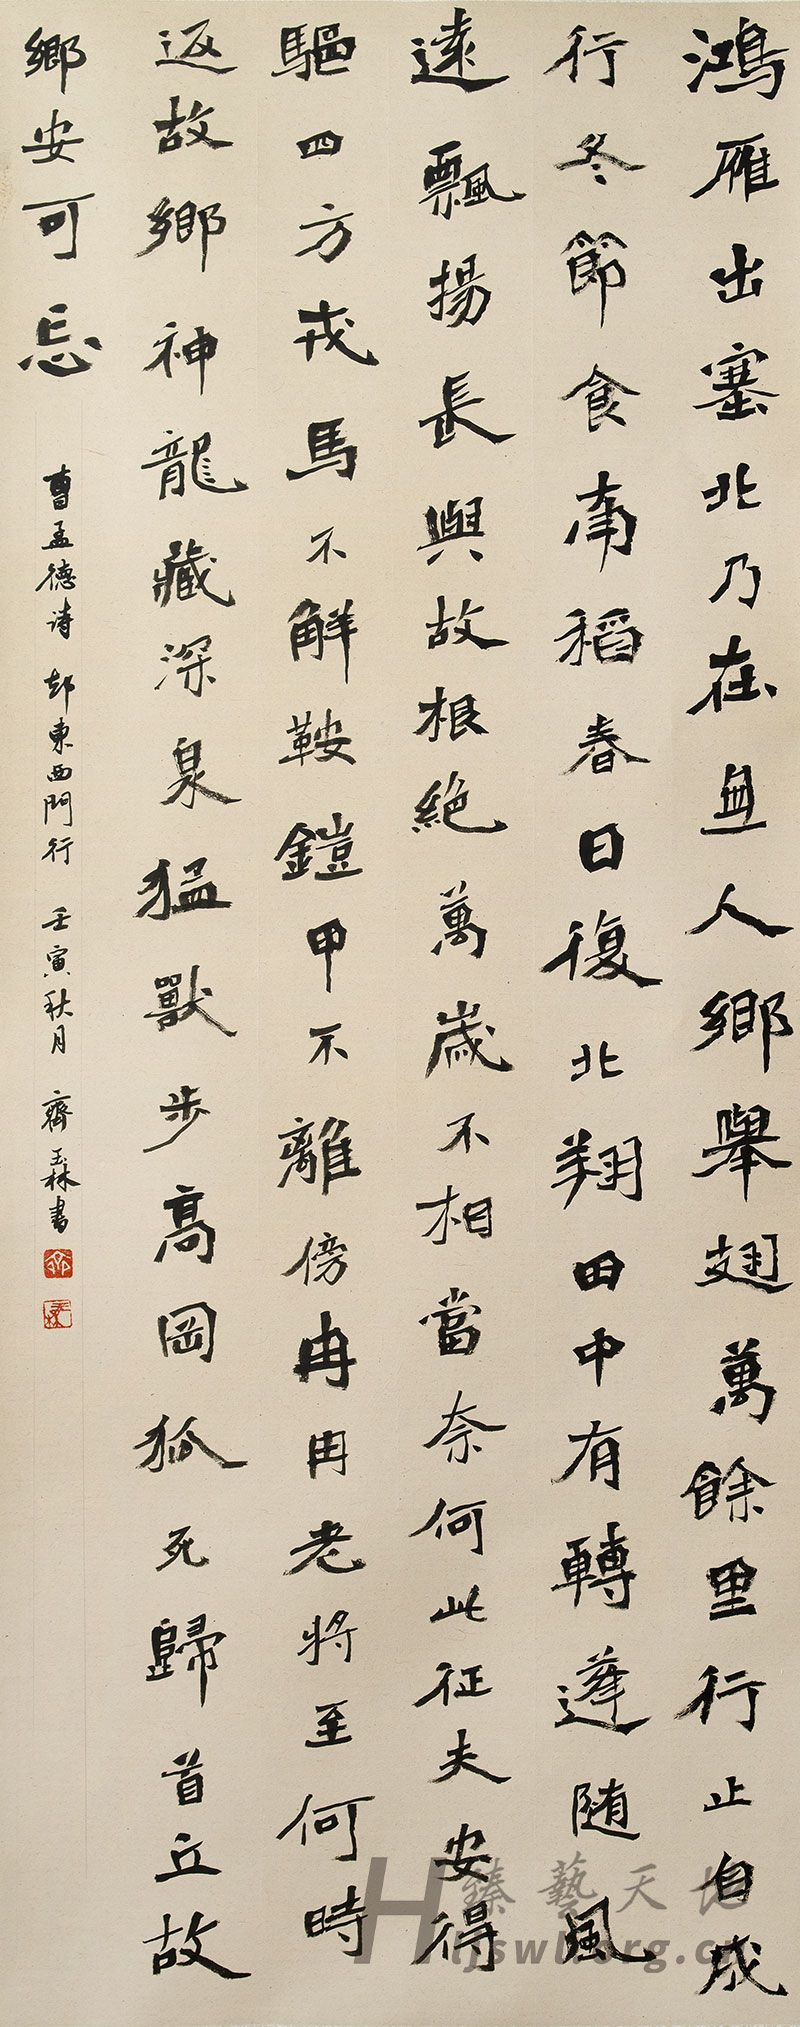 鴻雁出塞北乃在無人鄉舉翅萬餘里行止自成
行冬節食南稻春日復北翔田中有轉蓬隨風
遠飄揚長與故根絕萬歲不相當奈何此征夫安得
驅四方戎馬不解鞍鎧甲不離傍冉冉老將至何時
返故鄉神龍藏深泉猛獸步高岡狐死歸首丘故
鄉安可忘
曹孟德诗 却東西門行 壬寅秋月 齊玉森書
臻藝天地
Hljswl.org.cn